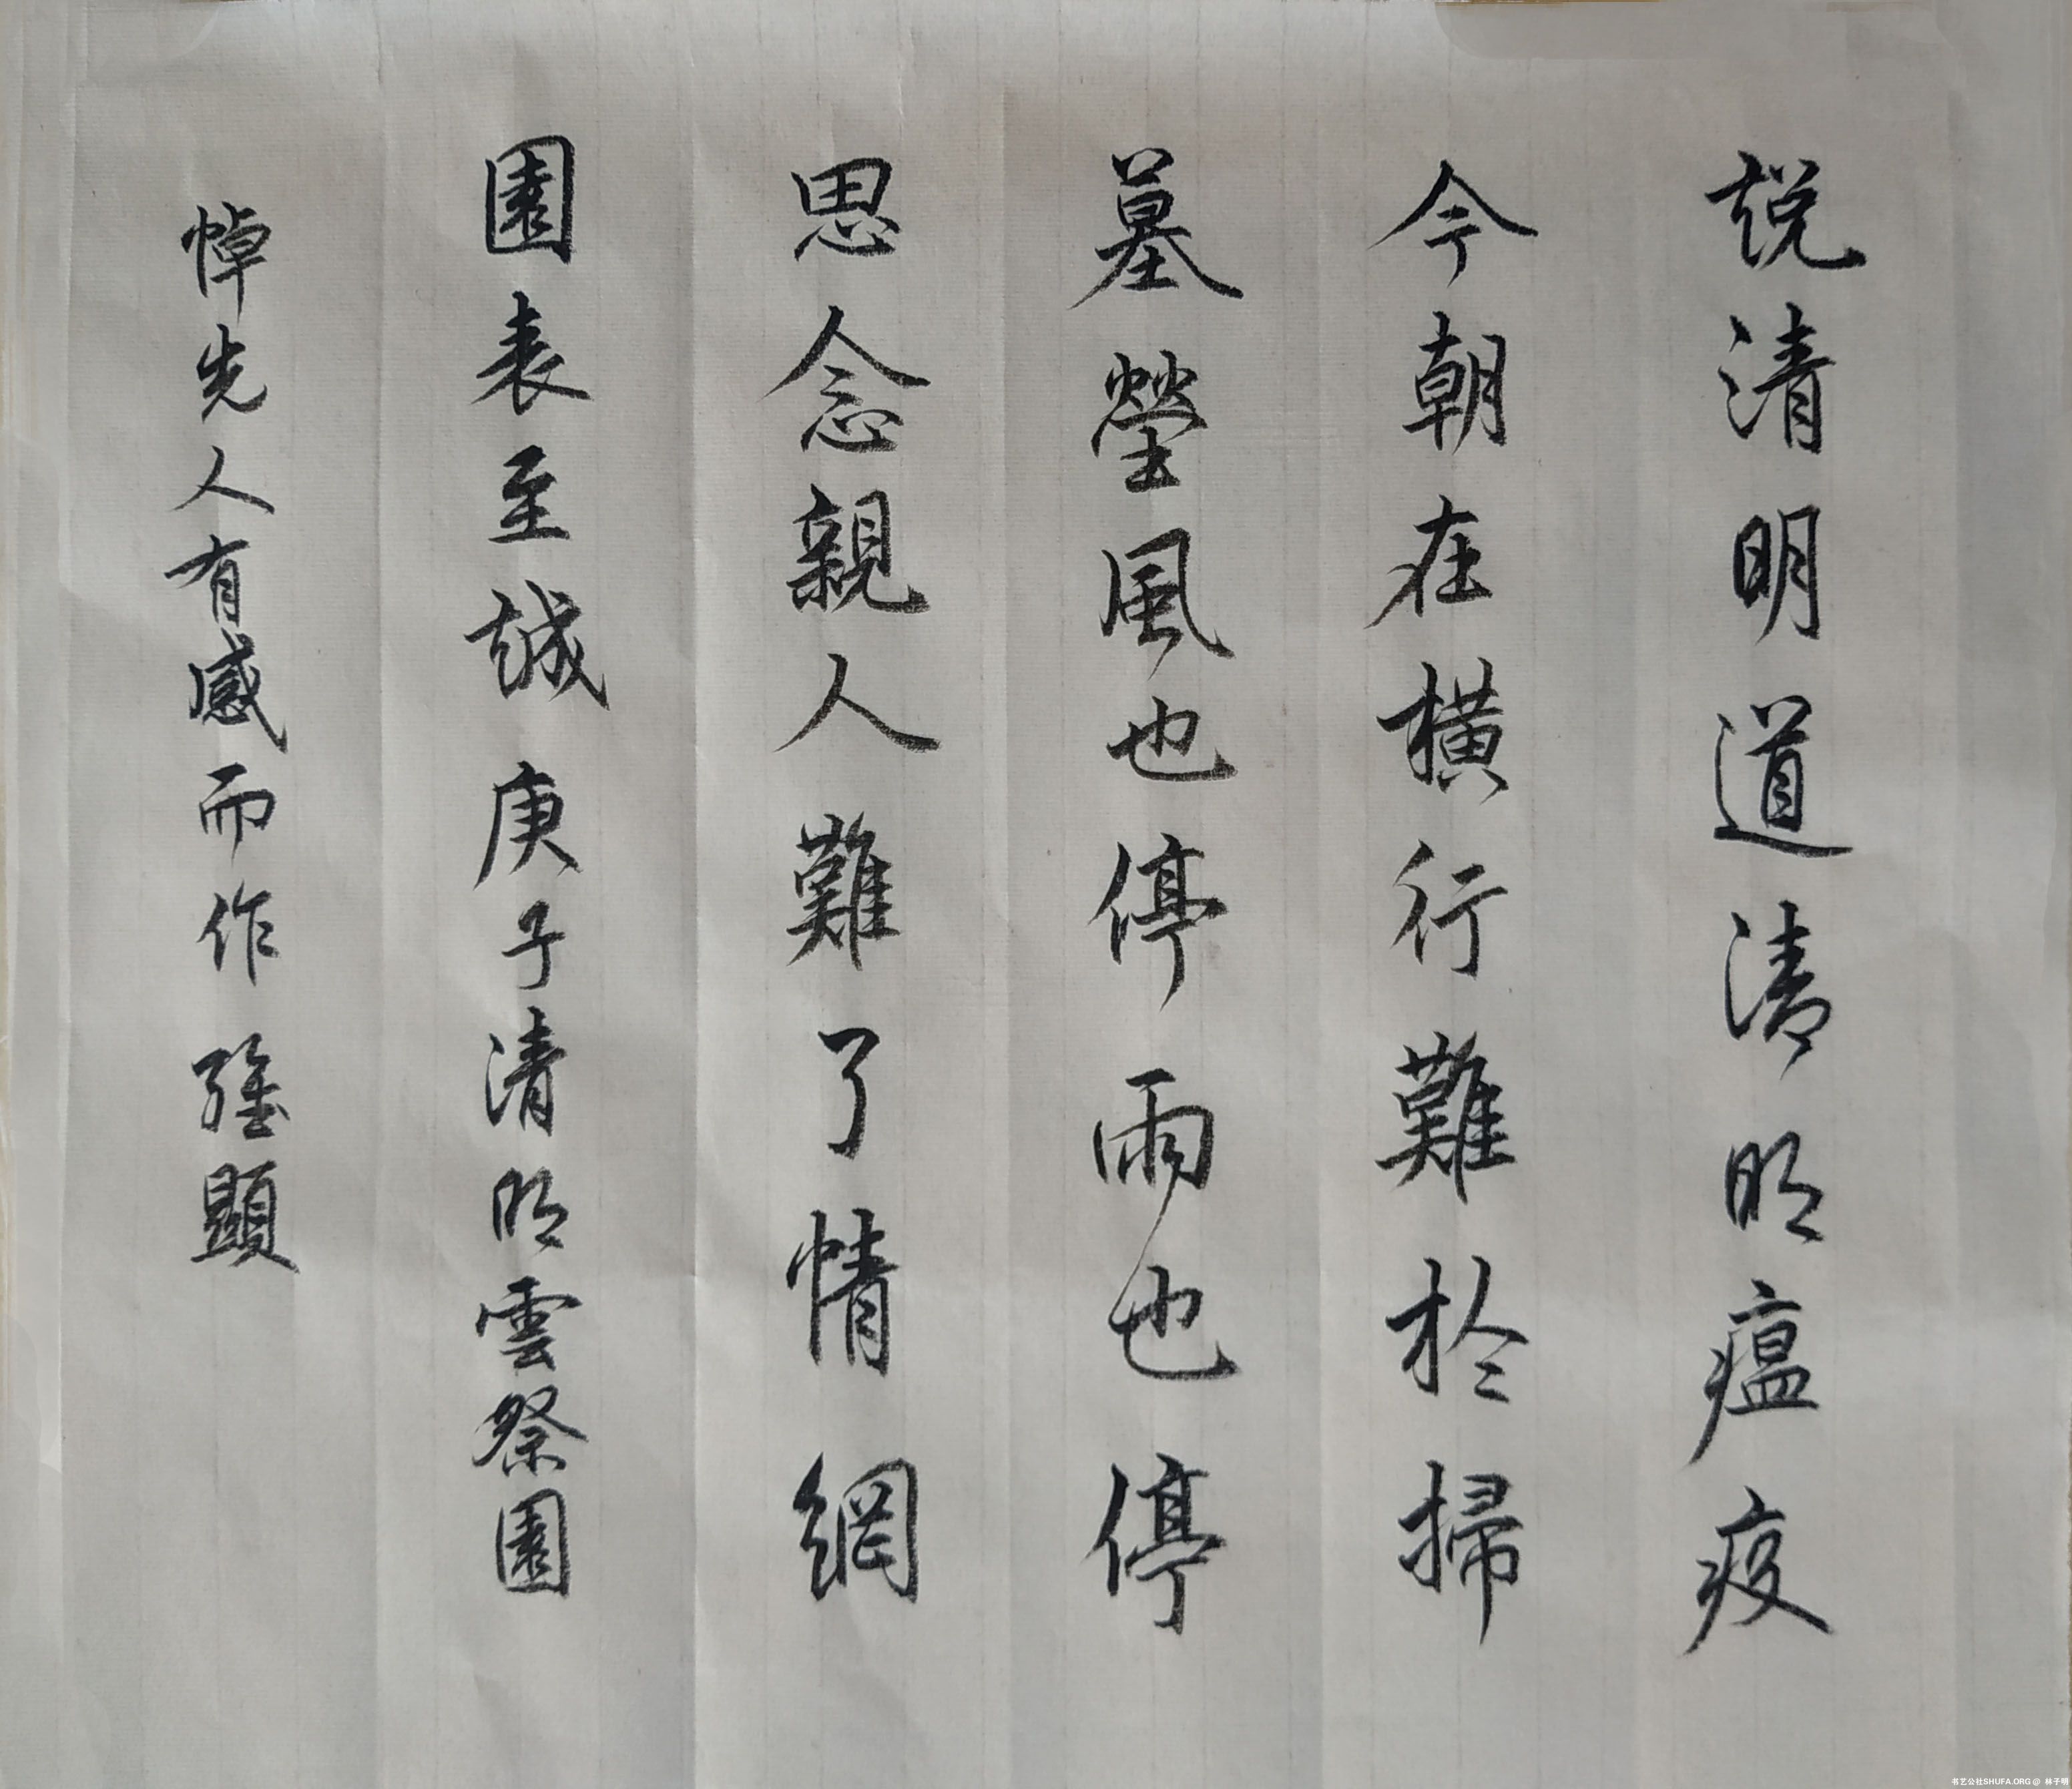 說清明道清明瘟疫
今朝在橫行難於掃
墓塋風也停雨也停
思念親人難了情網
園表至誠庚子清明雲祭園
悼先人有感而作 顯
书艺公社SHUFA.ORG @ 林子明